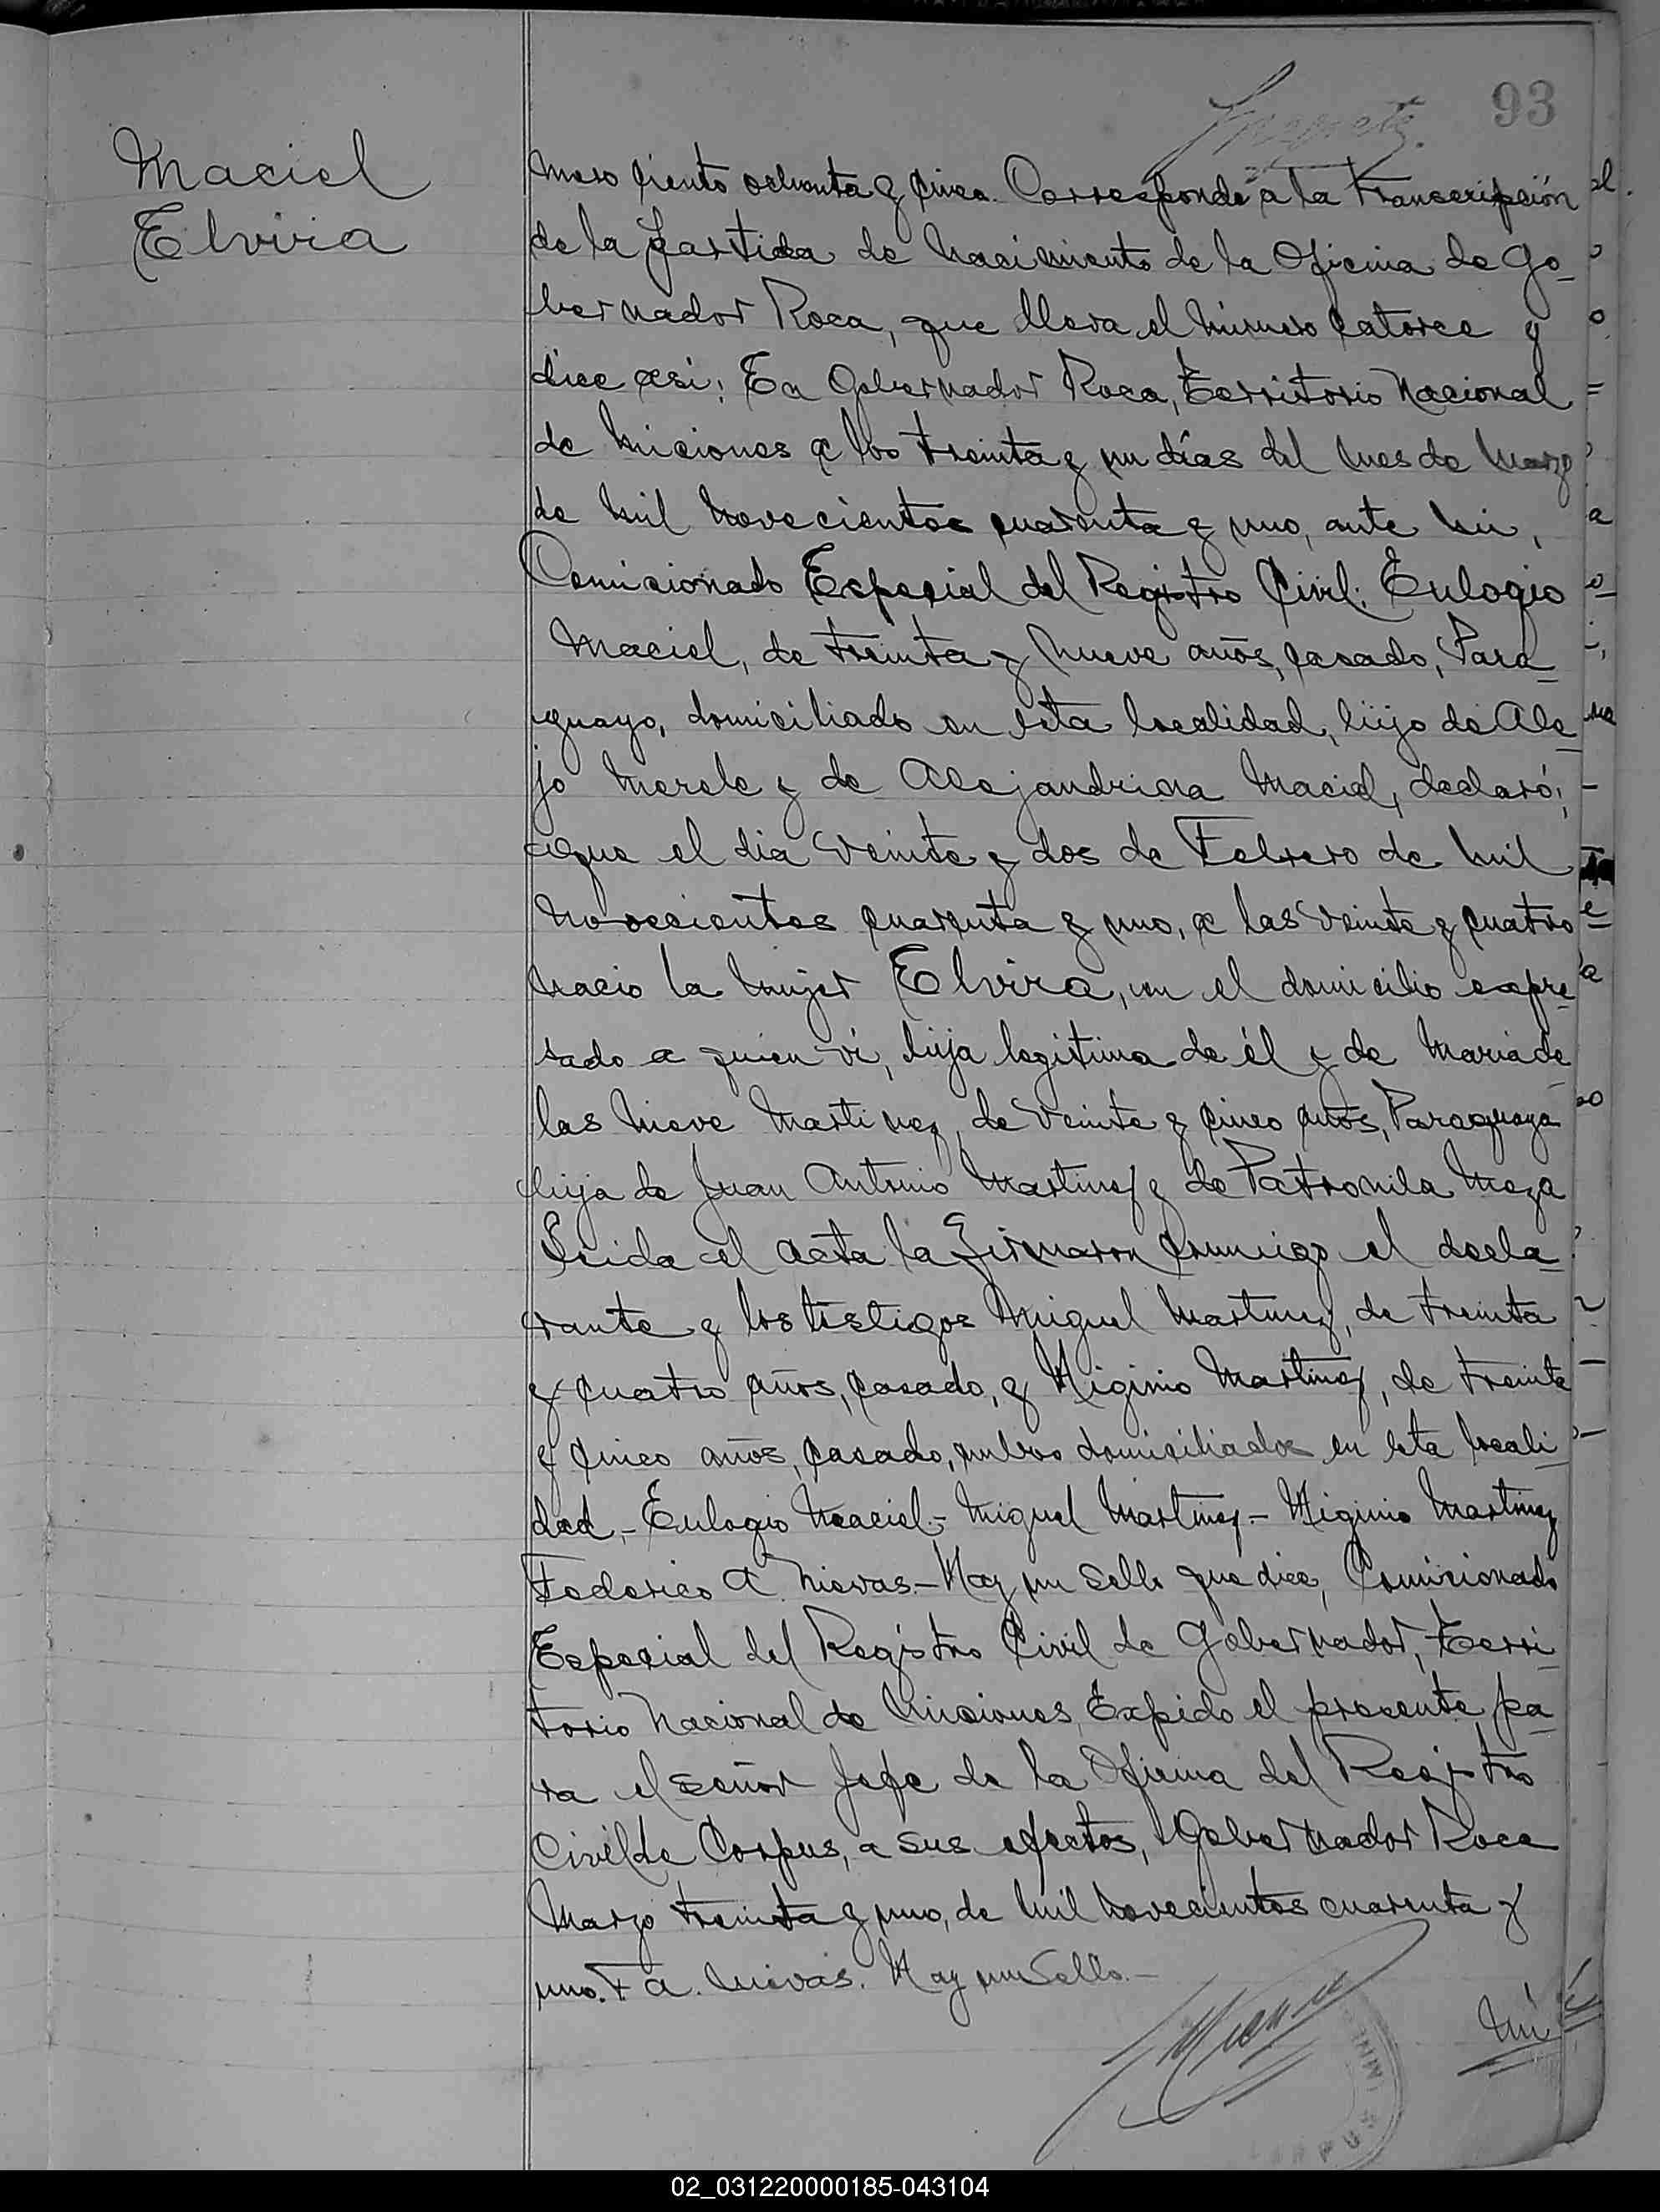 93
Maciel
Elvira
mero ciento ochenta y cinco. Corresponde a la transcripción
de la partida de nacimiento de la Oficina de Go-
bernador Roca, que lleva el número catorce y
dice así: En Gobernador Roca, territorio Nacional
de Miciones a los treinta y un días del mes de Marzo
de mil novecientos cuarenta y uno, ante mi,
Comicionado Especial del Registro Civil: Eulogio
Maciel, de treinta y nueve años, casado, Para-
guayo, domiciliado en esta localidad, hijo de Ale-
jo Merele y de Alejandrina Maciel, declaró:
que el dia veinte y dos de Febrero de mil
novecientos cuarenta y uno, a las veinte y cuatro
nacio la mujer Elvira, en el domicilio expre-
sado a quien vi, hija legitima de él y de Maria de
las Nieve Martinez, de veinte y cinco años, Paraguaya
hija de Juan Antonio Martinez y de Patronila Meza
Leida el acta la firmaron conmigo el decla-
rante y los testigos Miguel Martinez, de treinta
y cuatro años, casado, y Higinio Martinez, de treinta
y cinco años, casado, ambos domiciliados en esta locali-
dad.- Eulogio Maciel.- Miguel Martinez.- Higinio Martinez
Federico A. Nievas.- Hay un sello que dice, Comicionado
Especial del Registro Civil de Gobernador, Terri-
torio Nacional de Miciones, Expido el presente, pa-
ra el señor Jefe de la Oficina del Registro
Civil de Corpus, a sus efectos, Gobernador Roca
Marzo treinta y uno, de mil novecientos cuarenta y
uno. F A. Nievas. Hay un Sello.-
Nú
02_031220000185-043104